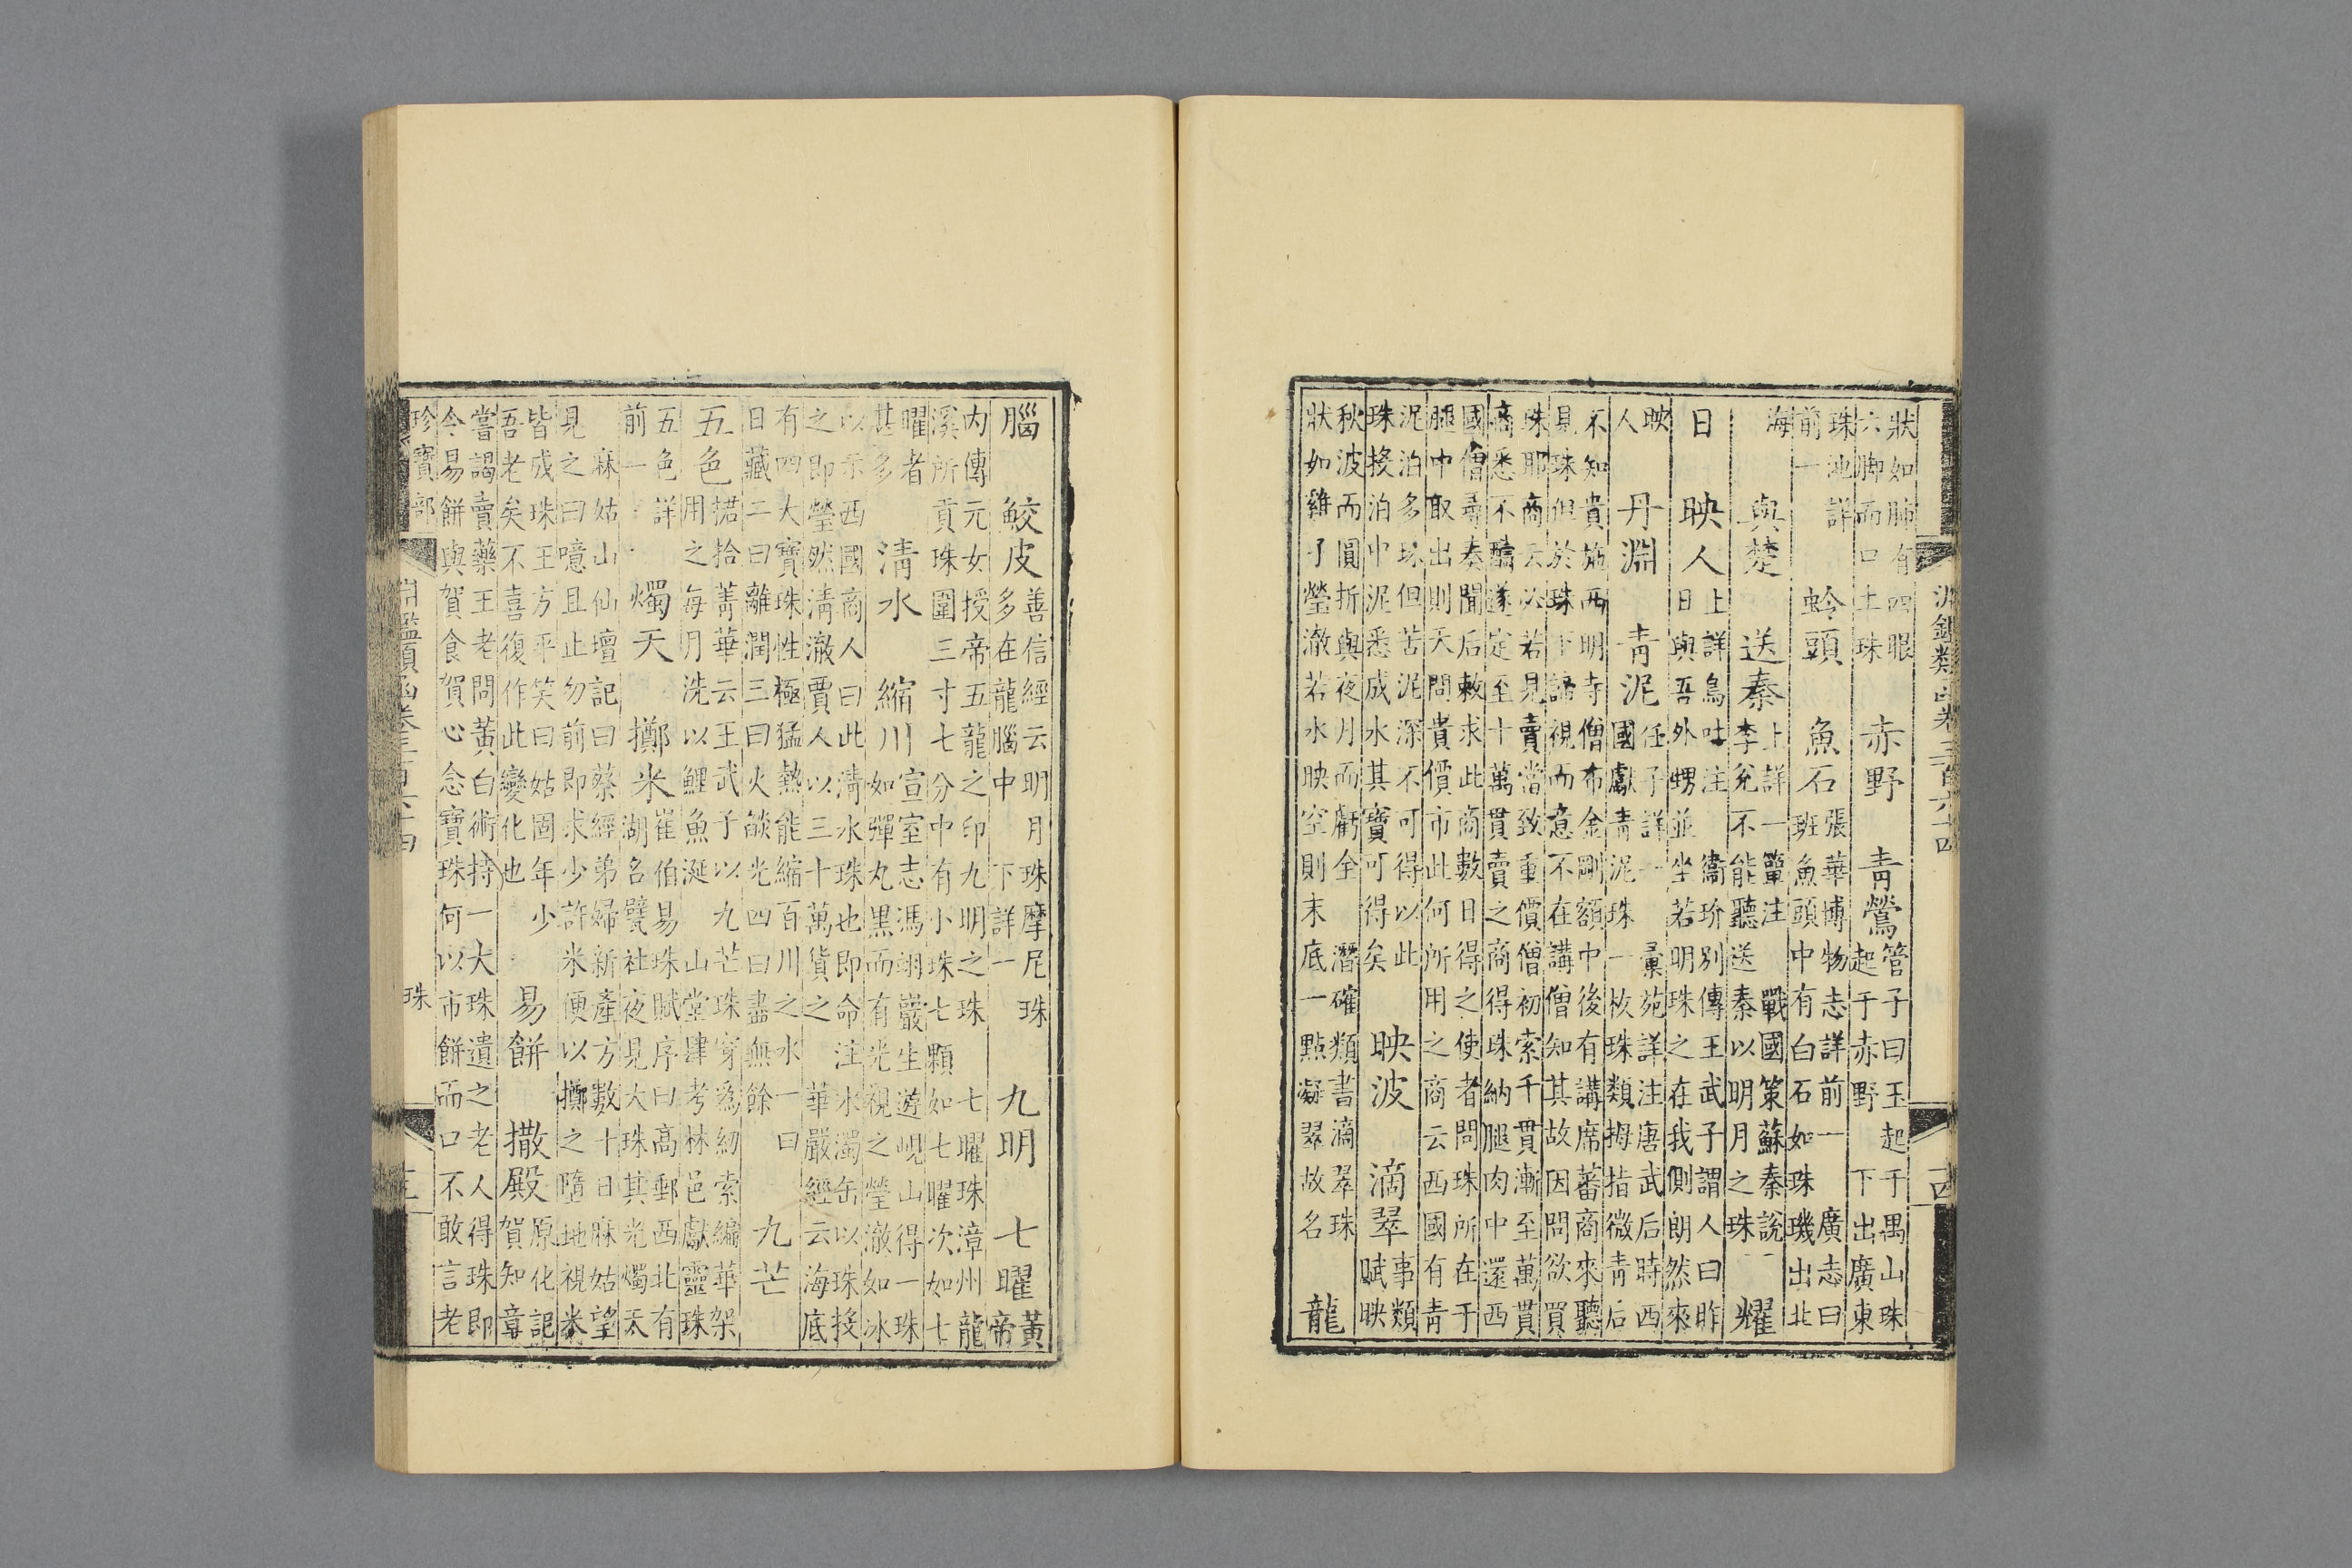 淵鑑類函卷三百六十四 十四
狀如肺有四眼
六脚而口土珠
赤野 青鶯
管子曰玉起于禺山珠
起于赤野 下出廣東
珠池詳
前一
蛉頭 魚石
張華博物志詳前一 廣志曰
班魚頭中有白石如珠璣出北
海
與楚 送秦
上詳一簞注 戰國策蘇秦說
李兌不能聽送秦以明月之珠
耀
日 映人
上詳烏吐注 衞玠別傳王武子謂人曰昨
日與吾外甥並坐若明珠之在我側朗然來
映
人
丹淵 青泥
任子詳一 彚苑詳注唐武后時西
國獻青泥珠一枚珠類拇指微青后
不知貴施西明寺僧布金剛額中後有講席蕃商來聽
見珠但於珠下諦視而意不在講僧知其故因問欲買
珠耶商云必若見賣當致重價僧初索千貫漸至萬貫
商悉不酬遂定至十萬貫賣之商得珠納腿肉中還西
國僧尋奏聞后敕求此商數日得之使者問珠所在于
腿中取出則天問貴價市此何所用之商云西國有青
泥泊多珠但苦泥深不可得以此
珠投泊中泥悉成水其寶可得矣
映波 滴翠
事類
賦映
秋波而圓折與夜月而虧全 潛確類書滴翠珠
狀如雞子瑩澈若水映空則末底一點凝翠故名
龍
腦 鮫皮
善信經云明月珠摩尼珠
多在龍腦中 下詳一
九明 七曜
黃
帝
內傳元女授帝五龍之印九明之珠 七曜珠漳州龍
溪所貢珠圍三寸七分中有小珠七顆如七曜次如七
曜者
甚多
清水 縮川
宣室志馮翊嚴生遊峴山得一珠
如彈丸黑而有光視之瑩澈如冰
以示西國商人曰此清水珠也即命注水濁缶以珠投
之即瑩然清澈賈人以三十萬貨之 華嚴經云海底
有四大寶珠性極猛熱能縮百川之水一曰
日藏二曰離潤三曰火燄光四曰盡無餘
九芒
五色
捃拾菁華云王武子以九芒珠穿爲紉索編華架
用之每月洗以鯉魚涎 山堂肆考林邑獻靈珠
五色詳
前一
燭天 擲米
崔伯易珠賦序曰高郵西北有
湖名甓社夜見大珠其光燭天
麻姑山仙壇記曰蔡經弟婦新產方數十日麻姑望
見之曰噫且止勿前即求少許米便以擲之墮地視米
皆成珠王方平笑曰姑固年少
吾老矣不喜復作此變化也
易餅 撒殿
原化記
賀知章
嘗謁賣藥王老問黃白術持一大珠遺之老人得珠即
今易餅與賀食賀心念寶珠何以市餅而口不敢言老
珍寶部 淵鑑類函卷三百六十四 珠